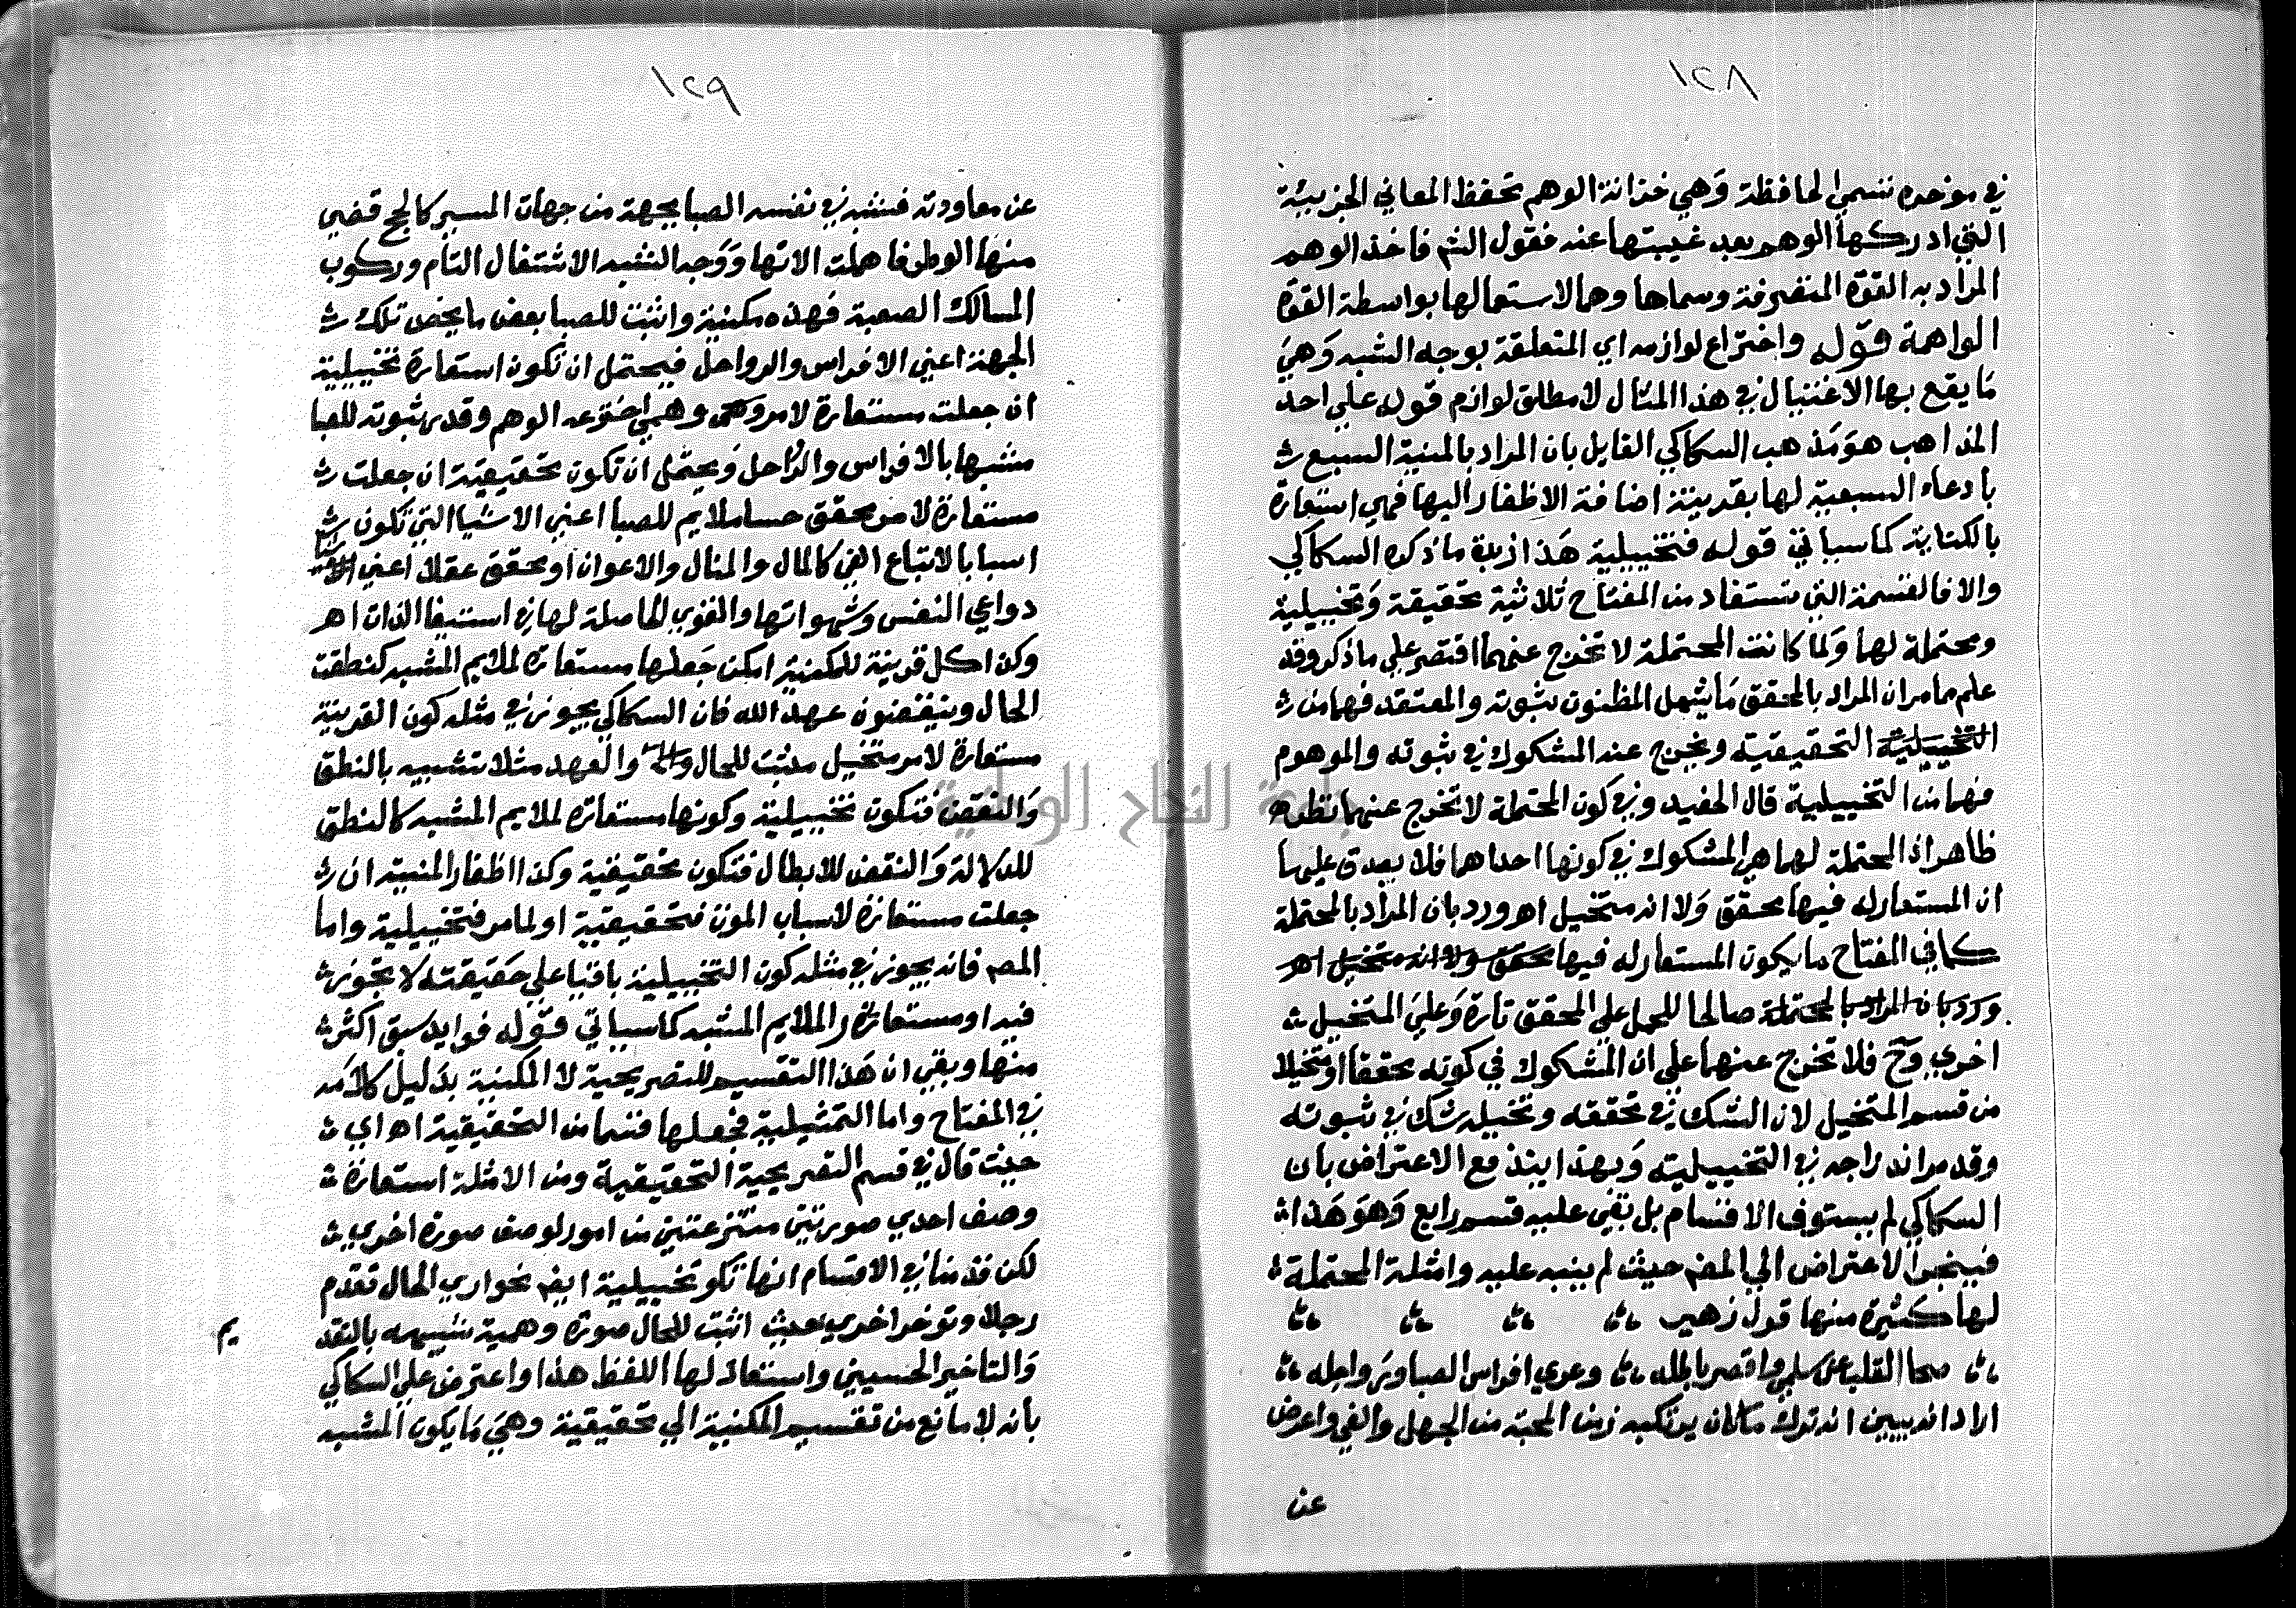 ١٢٨
في موخره تسمى الحافظة وهي خزانة الوهم تحفظ المعاني الجزيية
التي ادركها الوهم بعد غيبتها عنه فقول الشم فاخذ الوهم
المراد به القوة المتصرفة وسماها وهما لاستعمالها بواسطة القوة
الواهمة قوله واختراع لوازمه اي المتعلقة بوجه الشبه وهي
ما يقع بها الاغتيال في هذا المثال لا مطلق لوازم قوله علي احد
المذاهب هو مذهب السكاكي القايل بان المراد بالمنية السبع
بادعاء السبعية لها بقرينة اضافة الاظفار اليها فهي استعارة
بالكناية كما سياتي قوله فتخييلية هذا زبدة ما ذكره السكاكي
والا فالقسمة التي تستفاد من المفتاح ثلاثية تحقيقة وتخييلية
ومحتملة لها ولما كانت المحتملة لا تخرج عنهما اقتصر علي ما ذكر وقد
علم مما مر ان المراد بالمحقق ما يشمل المظنون ثبوته والمعتقد فهما من
التخييلية التحقيقية ويخرج عنه المشكوك في ثبوته والموهوم
فهما من التخييلية قال الحفيد وفي كون المحتملة لا تخرج عنهما نظر
ظاهر اذ المحتملة لهما هي المشكوك في كونها احداهما فلا يصدق عليها
ان المستعار له فيها محقق ولا انه متخيل اهـ ورد بان المراد بالمحتملة
كما في المفتاح ما يكون المستعار له فيها محقق ولا انه متخيل اهـ
ورد بان المراد بالمحتملة صالحا للحمل علي المحقق تارة وعلي المتخيل
اخري وح فلا تخرج عنهما علي ان المشكوك في كونه محققا او متخيلا
من قسم المتخيل لان الشك في تحققه وتخيله شك في ثبوته
وقد مر انه راجع في التخييلية وبهذا يندفع الاعتراض بان
السكاكي لم يستوف الاقسام بل بقي عليه قسم رابع وهو هذا
فيتجه الاعتراض الي المصم حيث لم ينبه عليه وامثلة المحتملة
لها كثيرة منها قول زهير
صحا القلب عن سلمي واقصر باطله وعري افراس الصبا ورواحله
اراد انه يبين انه ترك ما كان يرتكبه زمن المحبة من الجهل والغي واعرض
عن
١٢٩
عن معاودته فشبه في نفسه الصبا بجهة من جهات المسير كالحج قضي
منها الوطر فاهملت الاتها ووجه الشبه الاشتغال التام وركوب
المسالك الصعبة فهذه مكنية واثبت للصبا بعض ما يخص تلك
الجهة اعني الافراس والرواحل فيحتمل ان تكون استعارة تخييلية
ان جعلت مستعارة لامر وهمي اخترعه الوهم وقدر ثبوته للصبا
مشبها بالافراس والرواحل ويحتمل ان تكون تحقيقية ان جعلت
مستعارة لامر محقق حسا ملايم للصبا اعني الاشيا التي تكون
اسبابا لاتباع الغي كالمال والمنال والاعوان او محقق عقلا اعني
دواعي النفس وشهواتها والقوي الحاصلة لها في استيفا اللذات اهـ
وكذا كل قرينة للمكنية امكن جعلها مستعارة لملايم المشبه كنطقت
الحال وينقضون عهد الله فان السكاكي يجوز في مثله كون القرينة
مستعارة لامر متخيل مثبت للحال والعهد مثلا تشبيه بالنطق
والنقض فتكون تخييلية وكونها مستعارة لملايم المشبه كالنطق
للدلالة والنقض للابطال فتكون تحقيقية وكذا اظفار المنية ان
جعلت مستعارة لاسباب الموت فتحقيقية او لما مر فتخييلية واما
المصم فانه يجوز في مثله كون التخييلية باقيا علي حقيقته لا تجوز
فيه او مستعارة لملايم المشبه كما سياتي قوله فوايد سبق اكثر
منها وبقي ان هذا التقسيم للتصريحية لا المكنية بدليل كلامه
في المفتاح واما التمثيلية فجعلها قسما من التحقيقية اهـ اي
حيث قال في قسم التصريحية التحقيقية ومن الامثلة استعارة
وصف احدي صورتين منتزعتين من امور لوصف صورة اخري
لكن قدمنا في الاقسام انها تكو تخييلية ايضم نحو اري الحال تقدم
رجلا وتوخر اخري بحيث اثبت للحال صورة وهمية شبيهه بالتقد
يم
والتاخير الحسيين واستعار لها اللفظ هذا واعترض علي السكاكي
بانه لا مانع من تقسيم المكنية الي تحقيقية وهي ما يكون المشبه
جامعة النجاح الوطنية